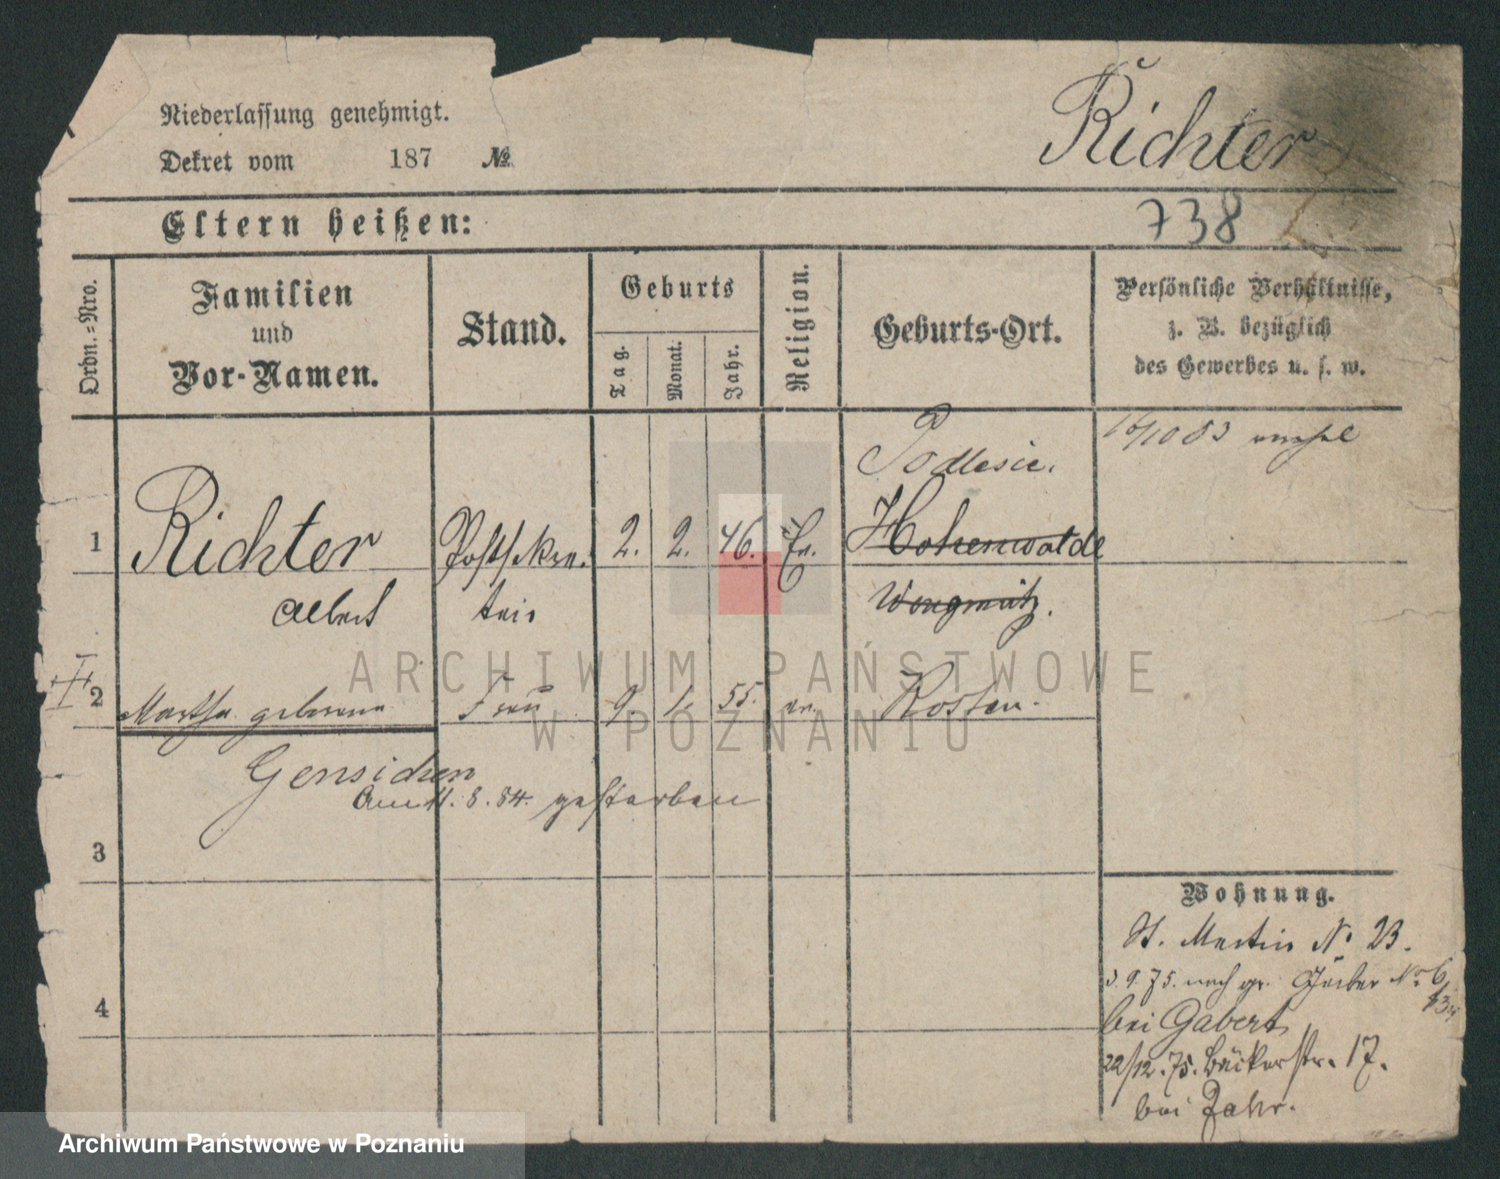 Niederlassung genehmigt.
Dekret vom 187 №
Richter
Eltern heißen:
738
Ordn.-Nro.
Familien
und
Vor-Namen.
Stand.
Geburts
Tag.
Monat.
Jahr.
Religion.
Geburts-Ort.
Persönliche Verhältnisse,
z. B. bezüglich
des Gewerbes u. s. w.
Podlesie.
10 83
1 Richter Postsekre- 2. 2. 46. Ev. Hohenwalde
Albert tair Wongrowitz.
2 Martha geborene Frau 9. 1. 55. ev. Kosten.
Gensichen
Am 11. 8. 84. gestorben
3
4
Wohnung.
St. Martin No 23.
3. 9. 75. nach gr. Gerber No 6
bei Gabert
22/12. 75. Bäckerstr. 17.
bei Jahr.
ARCHIWUM PAŃSTWOWE
W POZNANIU
Archiwum Państwowe w Poznaniu